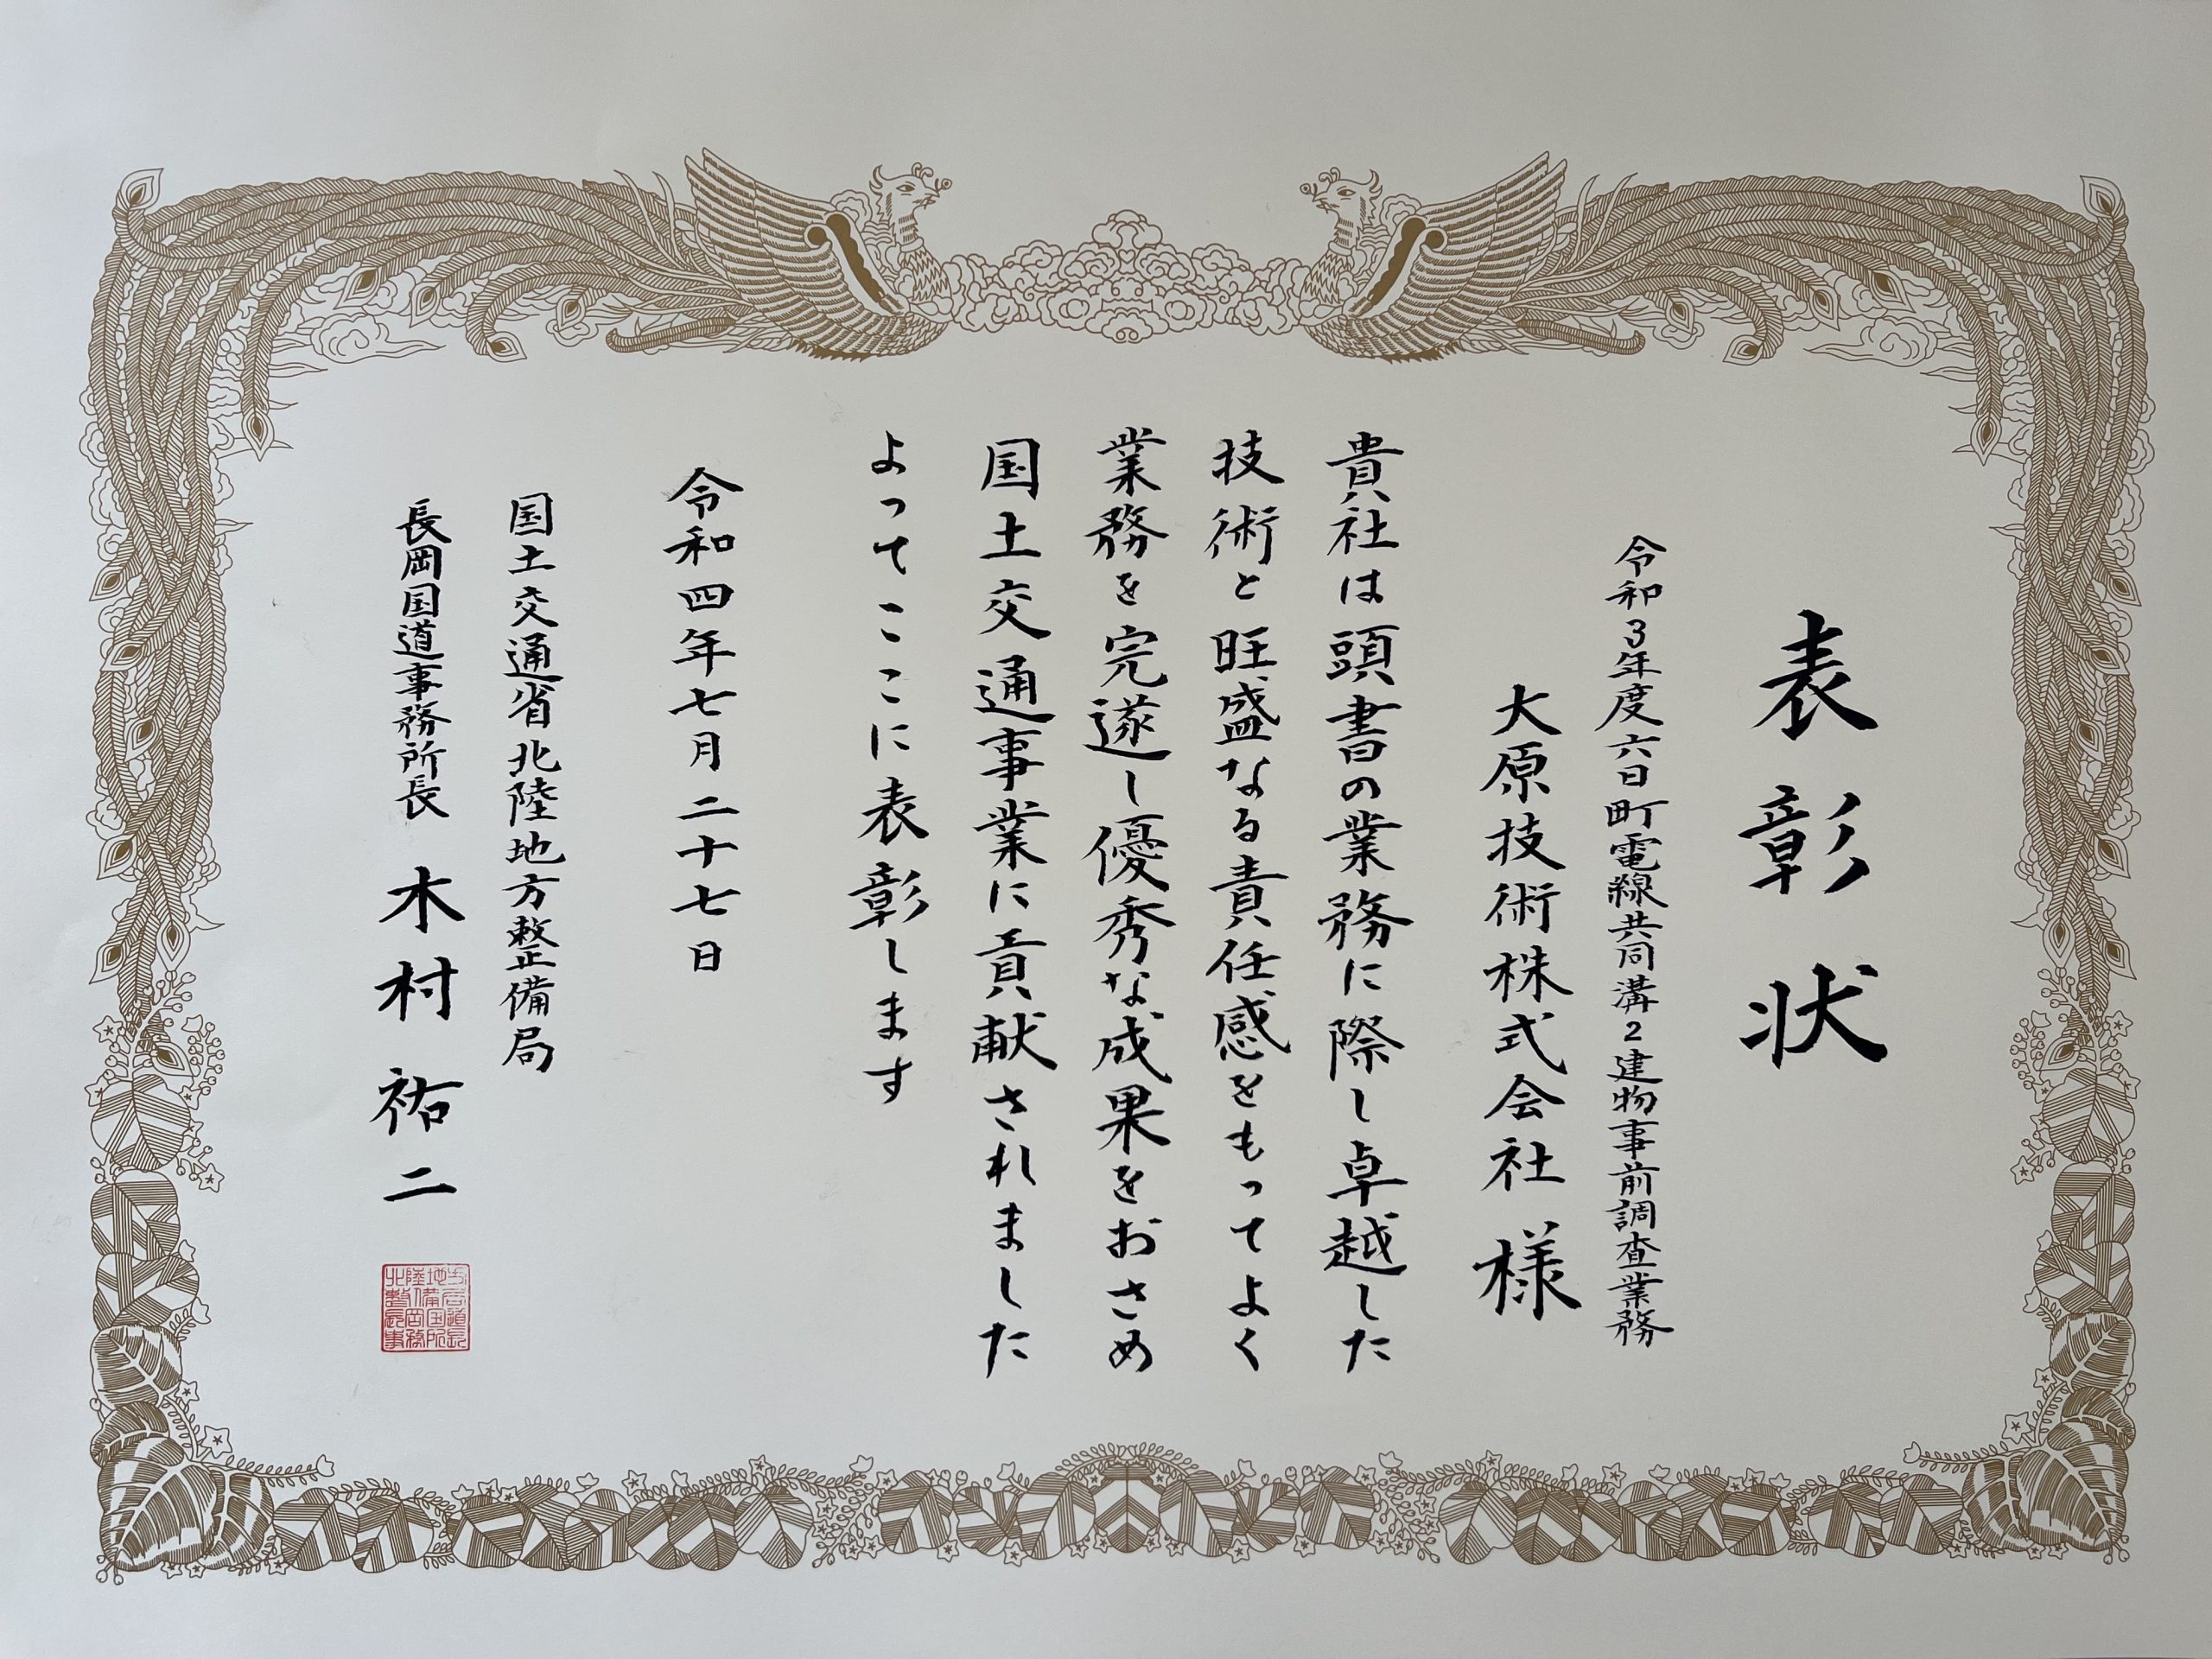 表彰状
令和3年度六日町電線共同溝2建物事前調査業務
大原技術株式会社 様
貴社は頭書の業務に際し卓越した
技術と旺盛なる責任感をもってよく
業務を完遂し優秀な成果をおさめ
国土交通事業に貢献されました
よってここに表彰します
令和四年七月二十七日
国土交通省北陸地方整備局
長岡国道事務所長 木村祐二